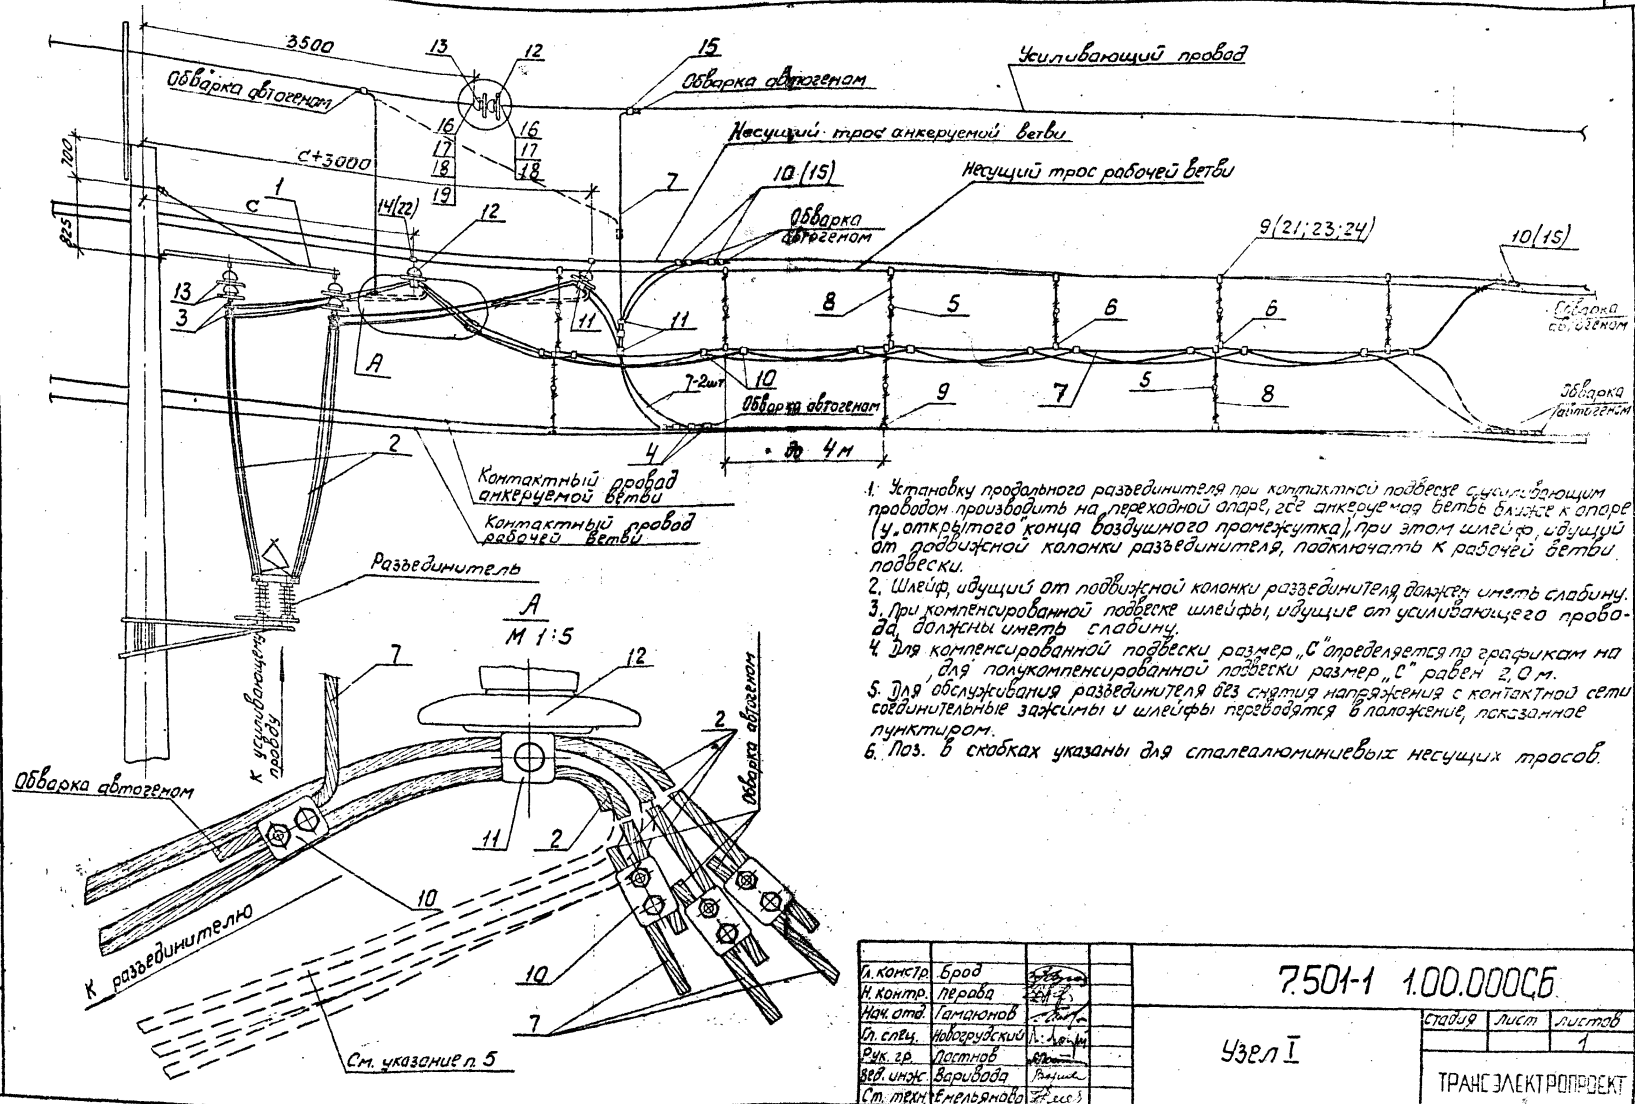 3500
13
12
15
Усиливающий провод
Обварка автогеном
Обварка автогеном
16
17
18
19
16
17
18
Несущий трос анкеруемой ветви
С+3000
700
825
1
С
14(22)
12
7
10(15)
Несущий трос рабочей ветви
Обварка
автогеном
9(21;23;24)
10(15)
13
3
11
11
8
5
6
6
Обварка
автогеном
А
7-2шт
10
7
5
8
Обварка автогеном
9
Обварка
автогеном
4
до 4м
2
Контактный провод
анкеруемой ветви
Контактный провод
рабочей ветви
Разъединитель
К усиливающему
проводу
1. Установку продольного разъединителя при контактной подвеске с усиливающим
проводом производить на переходной опоре, где анкеруемая ветвь ближе к опоре
(у „открытого" конца воздушного промежутка), при этом шлейф, идущий
от подвижной колонки разъединителя, подключать к рабочей ветви
подвески.
2. Шлейф, идущий от подвижной колонки разъединителя, должен иметь слабину.
3. При компенсированной подвеске шлейфы, идущие от усиливающего прово-
да, должны иметь слабину.
4. Для компенсированной подвески размер „С" определяется по графикам на
, для полукомпенсированной подвески размер „С" равен 2,0м.
5. Для обслуживания разъединителя без снятия напряжения с контактной сети
соединительные зажимы и шлейфы переводятся в положение, показанное
пунктиром.
6. Поз. в скобках указаны для сталеалюминиевых несущих тросов.
А
М 1:5
7
12
2
Обварка автогеном
Обварка автогеном
11
2
10
К разъединителю
10
7
См. указание п. 5
Гл. констр. Брод
Н. контр. Перова
Нач. отд. Гамаюнов
Гл. спец. Новогрудский
Рук. гр. Постнов
Вед. инж. Варивода
Ст. техн. Емельянова
7.501-1 1.00.000СБ
Узел I
стадия лист листов
1
ТРАНСЭЛЕКТРОПРОЕКТ